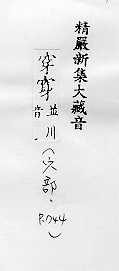 精嚴新集大藏音
穿穿並川(穴部.
音
P.744)